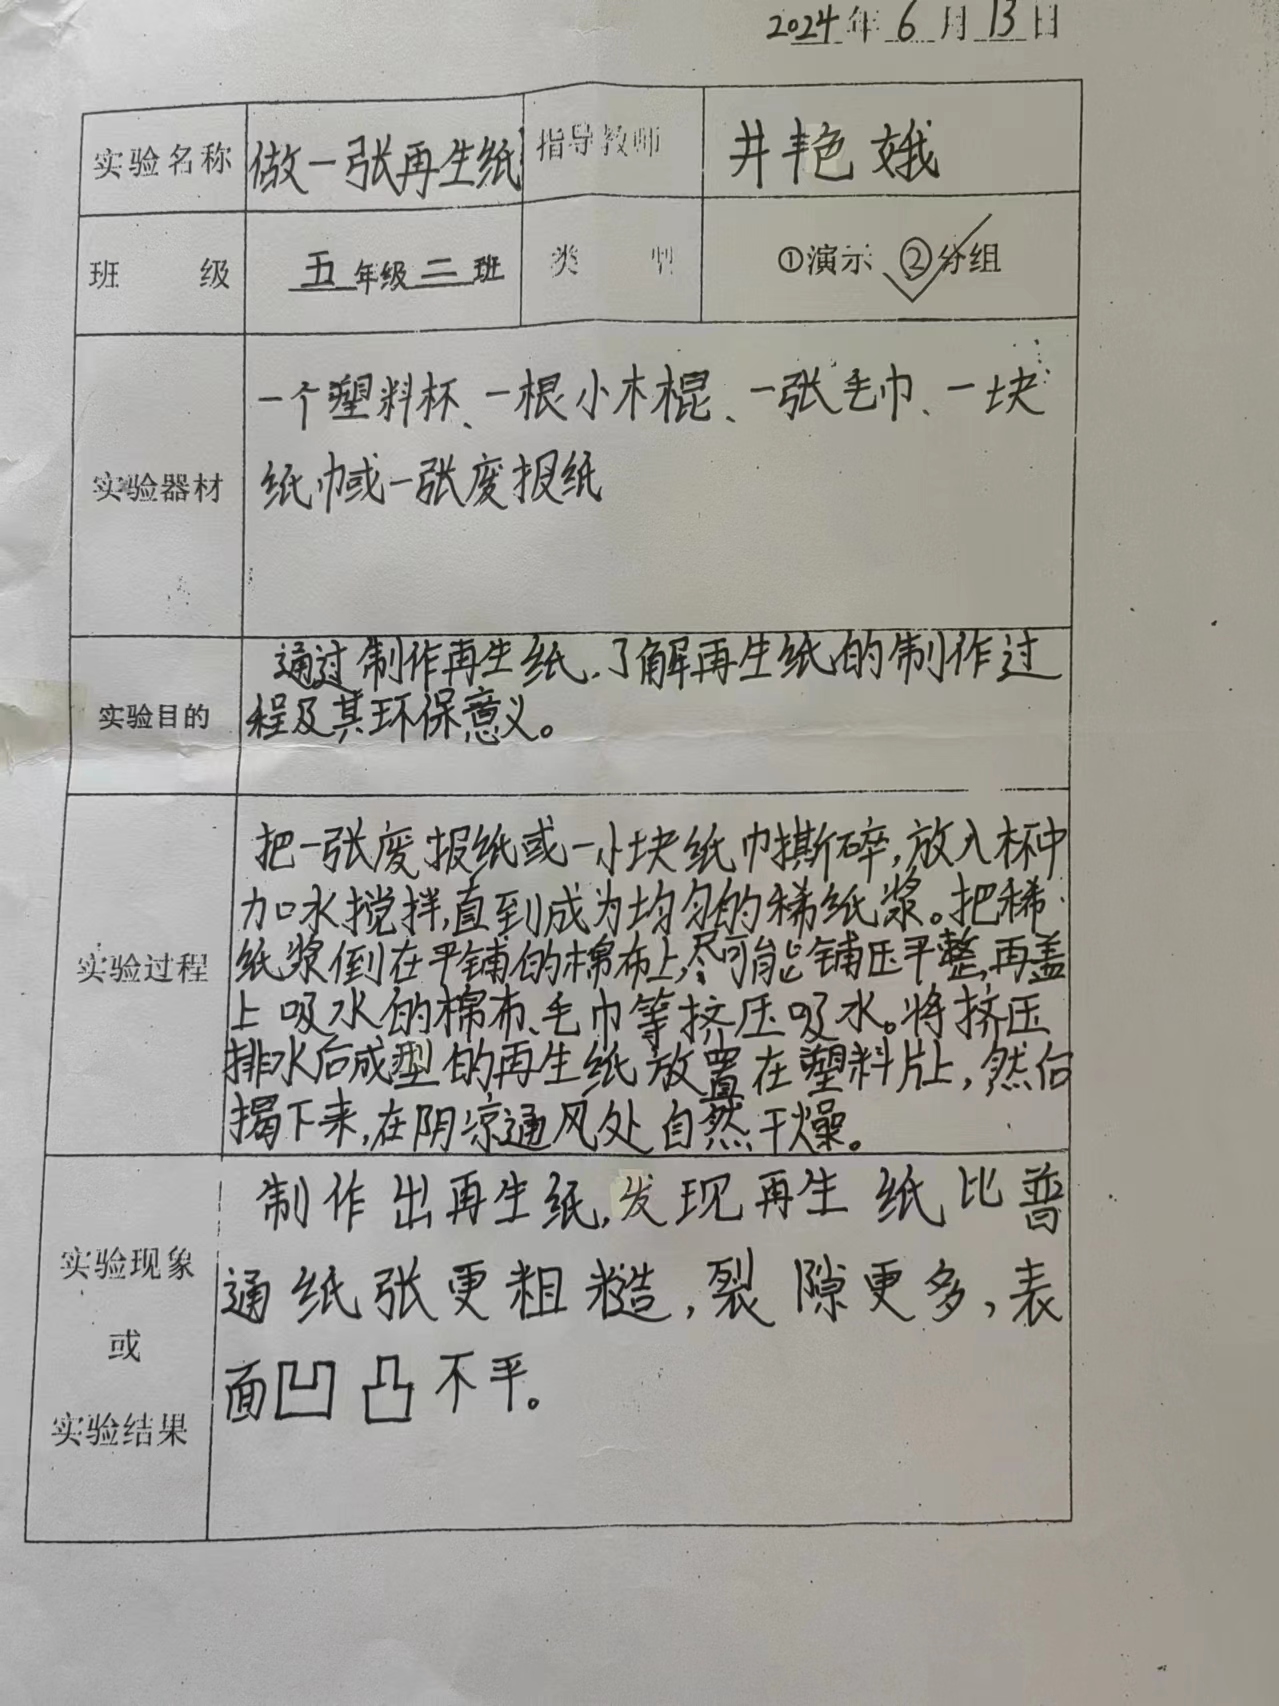 2024年6月13日
实验名称 做一张再生纸 指导教师 井艳娥
班 级 五年级二班 类 型 ①演示 ②分组
一个塑料杯、一根小木棍、一张毛巾、一块
实验器材 纸巾或一张废报纸
通过制作再生纸,了解再生纸的制作过
实验目的 程及其环保意义。
把一张废报纸或一小块纸巾撕碎,放入杯中
加水搅拌,直到成为均匀的稀纸浆。把稀
实验过程 纸浆倒在平铺的棉布上,尽可能铺压平整,再盖
上吸水的棉布、毛巾等挤压吸水。将挤压
排水后成型的再生纸放置在塑料片上,然后
揭下来,在阴凉通风处自然干燥。
制作出再生纸,发现再生纸比普
实验现象 通纸张更粗糙,裂隙更多,表
或 面凹凸不平。
实验结果